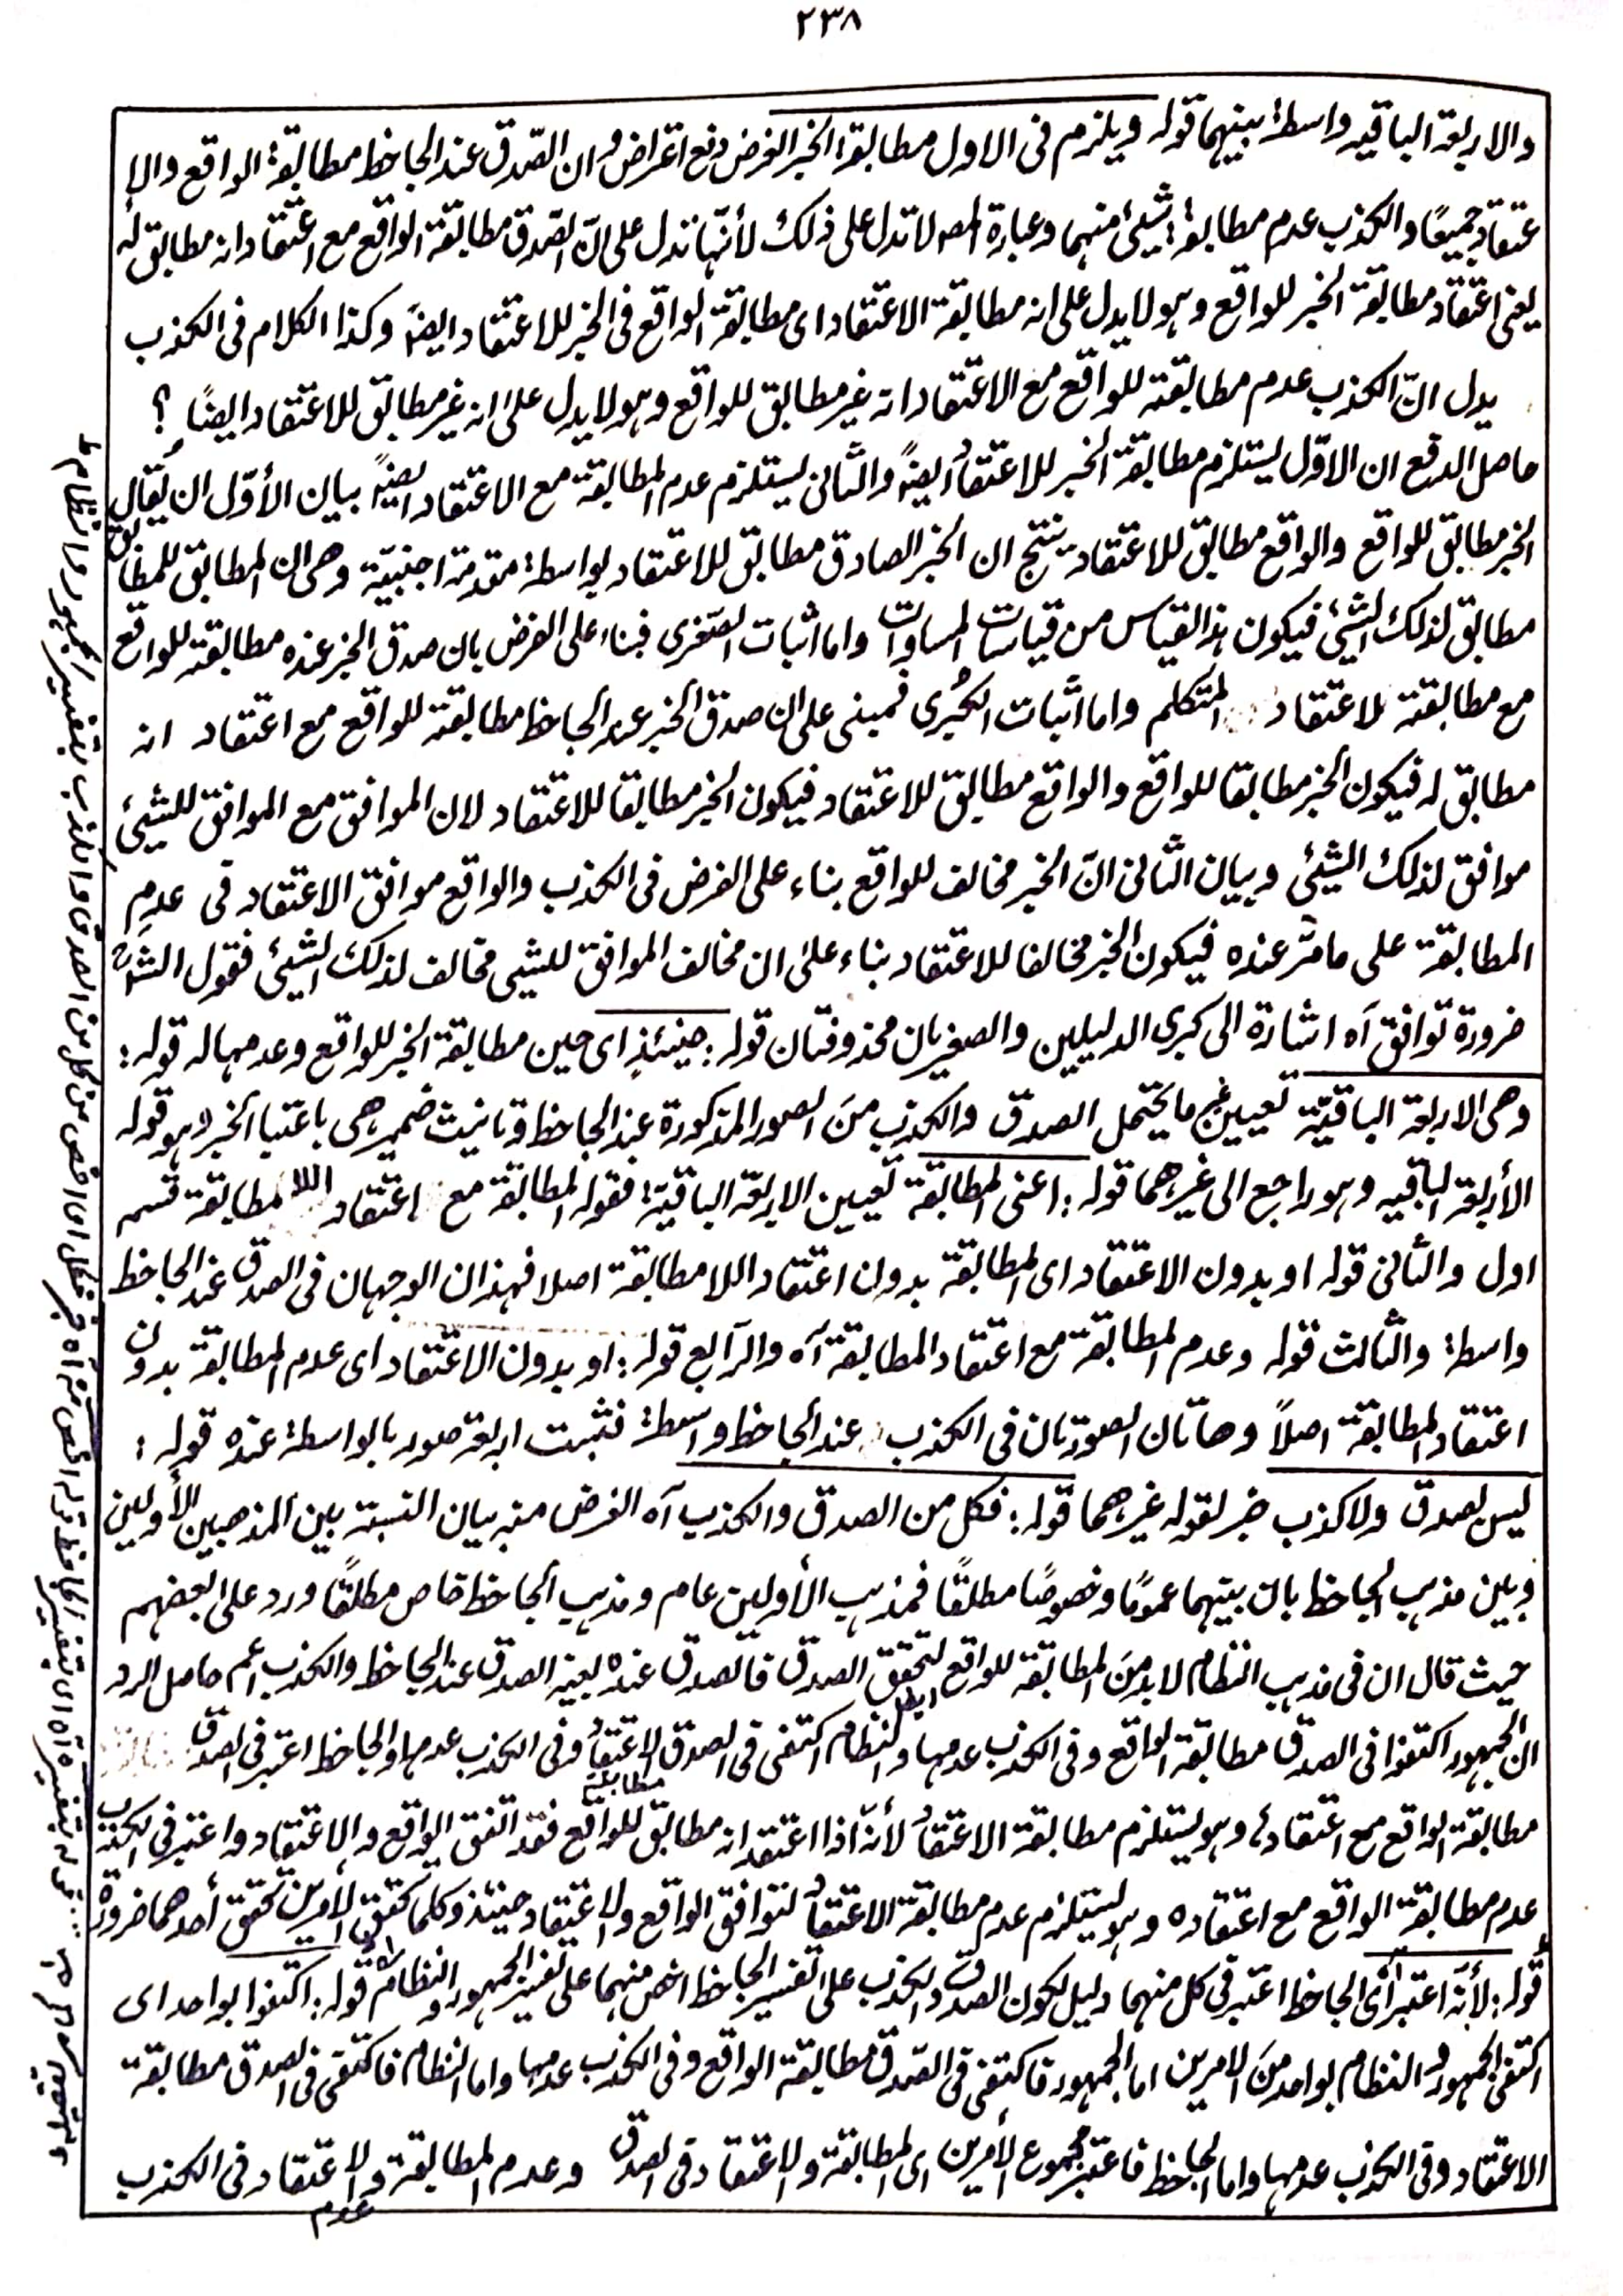 ٢٣٨
والاربعة الباقيه واسطة بينهما قوله ويلزم فى الاول مطابقة الخبر الغرض دفع اعتراض وان الصّدق عند الجاحظ مطابقة الواقع والا
عتقاد جميعًا والكذب عدم مطابقة شيئ منهما وعبارة المصـ لا تدل على ذلك لأنّها تدل على انّ الصّدق مطابقة الواقع مع اعتقاد انه مطابق له
يعنى اعتقاد مطابقة الخبر للواقع وهو لا يدل على انه مطابقة الاعتقاد اى مطابقة الواقع فى الخبر للاعتقاد ايضًا وكذا الكلام فى الكذب
يدل انّ الكذب عدم مطابقته للواقع مع الاعتقاد انه غير مطابق للواقع وهو لا يدل على انه غير مطابق للاعتقاد ايضًا ؟
حاصل الدفع ان الاوّل يستلزم مطابقة الخبر للاعتقاد ايضًا والثانى يستلزم عدم المطابقة مع الاعتقاد ايضًا بيان الأوّل ان يُقال
الخبر مطابق للواقع والواقع مطابق للاعتقاد ينتج ان الخبر الصادق مطابق للاعتقاد بواسطة مقدمة اجنبيّة وهى ان المطابق للمطابق
مطابق لذلك الشيئ فيكون هذا القياس من قياسات المساوات واما اثبات الصّغرى فبناء على الفرض بان صدق الخبر عنده مطابقته للواقع
مع مطابقته لاعتقاد المتكلم واما اثبات الكُبرى فمبنى على ان صدق الخبر عند الجاحظ مطابقته للواقع مع اعتقاد انه
مطابق له فيكون الخبر مطابقا للواقع والواقع مطابق للاعتقاد فيكون الخبر مطابقا للاعتقاد لان الموافق مع الموافق للشيئ
موافق لذلك الشيئ وبيان الثانى انّ الخبر مخالف للواقع بناء على الفرض فى الكذب والواقع موافق الاعتقاد فى عدم
المطابقة على ما مرّ عنده فيكون الخبر مخالفا للاعتقاد بناء على ان مخالف الموافق للشيى مخالف لذلك الشيئ فقول الشارح
ضرورة توافق آه اشارة الى كبرى الدليلين والصغريان محذوفتان قوله: حينئذٍ اى حين مطابقة الخبر للواقع وعدمها له قوله:
وهى الاربعة الباقيّة تعيين غير ما يحتمل الصدق والكذب منَ الصور المذكورة عند الجاحظ وتانيث ضمير هى باعتبار الخبر وهو قوله
الأربعة الباقيه وهو راجع الى غيرهما قوله: اعنى المطابقة تعيين الاربعة الباقية؛ فقوله المطابقة مع اعتقاد اللا مطابقة قسم
اول والثانى قوله او بدون الاعتقاد اى المطابقة بدون اعتقاد اللا مطابقة اصلا فهذان الوجهان فى الصدق عند الجاحظ
واسطة والثالث قوله وعدم المطابقة مع اعتقاد المطابقة آه والرّابع قوله: او بدون الاعتقاد اى عدم المطابقة بدون
اعتقاد المطابقة اصلاً وهاتان الصورتان فى الكذب عند الجاحظ واسطة فثبت اربعة صور بالواسطة عنده قوله:
ليس بصدق ولا كذب خبر لقوله غيرهما قوله: فكل من الصدق والكذب آه الغرض منه بيان النسبة بين المذهبين الأولين
وبين مذهب الجاحظ بان بينهما عمومًا وخصوصًا مطلقًا فمذهب الأولين عام ومذهب الجاحظ خاص مطلقًا ورد على بعضهم
حيث قال ان فى مذهب النظام لابد منَ المطابقة للواقع ايضا لتحقق الصدق فالصدق عنده بعينه الصدق عند الجاحظ والكذب اعم حاصل الرد
ان الجمهور اكتفوا فى الصدق مطابقة الواقع وفى الكذب عدمها والنظام اكتفى فى الصدق مطابقة الاعتقاد وفى الكذب عدمها والجاحظ اعتبر فى الصدق
مطابقة الواقع مع اعتقاده وهو يستلزم مطابقة الاعتقاد لأنّه اذا اعتقد انه مطابق للواقع فقد اتفق الواقع والاعتقاد واعتبر فى الكذب
عدم مطابقة الواقع مع اعتقاده وهو يستلزم عدم مطابقة الاعتقاد لتوافق الواقع والاعتقاد حينئذ وكلما تحقق الامرين تحقق أحدهما ضرورة
قوله: لأنّه اعتبر اى الجاحظ اعتبر فى كل منهما دليل لكون الصدق والكذب على تفسير الجاحظ اخص منهما على تفسير الجمهور والنظام قوله: اكتفوا بواحد اى
اكتفى الجمهور والنظام بواحد منَ الامرين اما الجمهور فاكتفى فى الصّدق مطابقة الواقع وفى الكذب عدمها واما النظام فاكتفى فى الصدق مطابقة
الاعتقاد وفى الكذب عدمها واما الجاحظ فاعتبر مجموع الأمرين اى المطابقة والاعتقاد فى الصدق وعدم المطابقة وعدم الاعتقاد فى الكذب